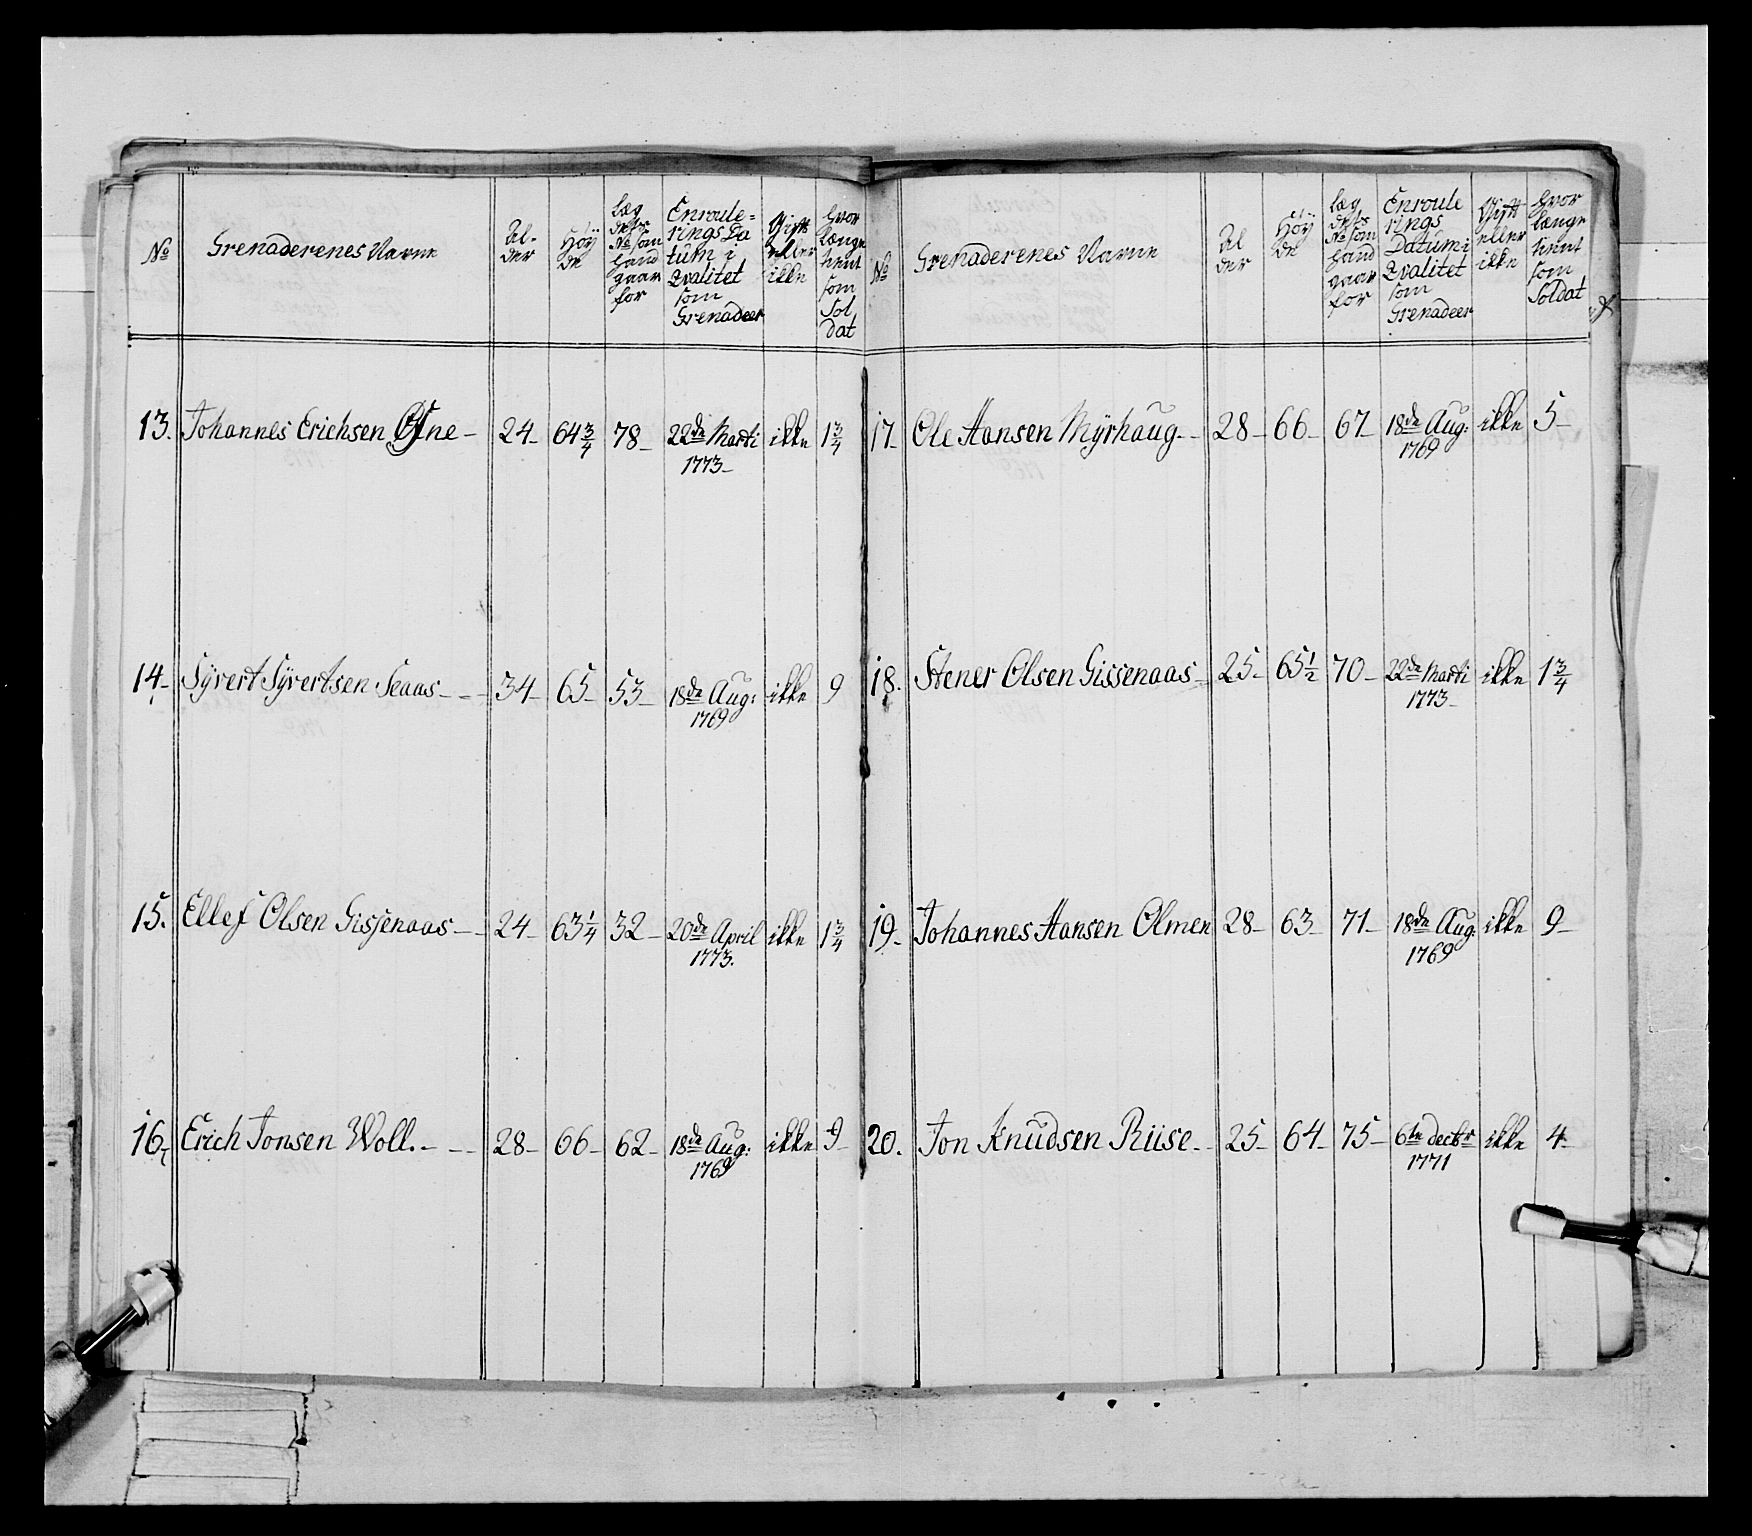 No Grenaderenes Navne Al- der Höÿ de Læg dets No som hand gaar for Enroule= rings Da tum i Qvalitet som Grenadeer Gift eller ikke hvor længe tient som Sol dat
13. Johannes Erichsen 24 64 3/4 78 22de Marti 1773 ikke 1 3/4
14 Sÿvert Sÿvertsen Seaas 34 65 53 18de Aug: 1769 ikke 9
15. Ellef Olsen Gissenaas 24 63 1/4 32 20de April 1773. ikke 1 3/4
16 Erich Jonsen Woll. 28 66 62 18de Aug: 1769 ikke 9
No Grenaderenes Navne Al der Höÿ de Læg dets No som hand gaar for Enroule rings Datum i Qvalitet som Grenadeer Gift eller ikke hvor længe tient som Soldat
17 Ole Hansen Mÿrhaug 28 66 67 18de Aug: 1769 ikke 5
18. Stener Olsen Gissenaas 25 65 1/2 70 22de Marti 1773 ikke 1 3/4
19 Johannes Hansen Olmen 28 63 71 18de Aug: 1769 ikke 9
20. Jon Knudsen Riise 25 64 75 6te decbr 1771 ikke 4